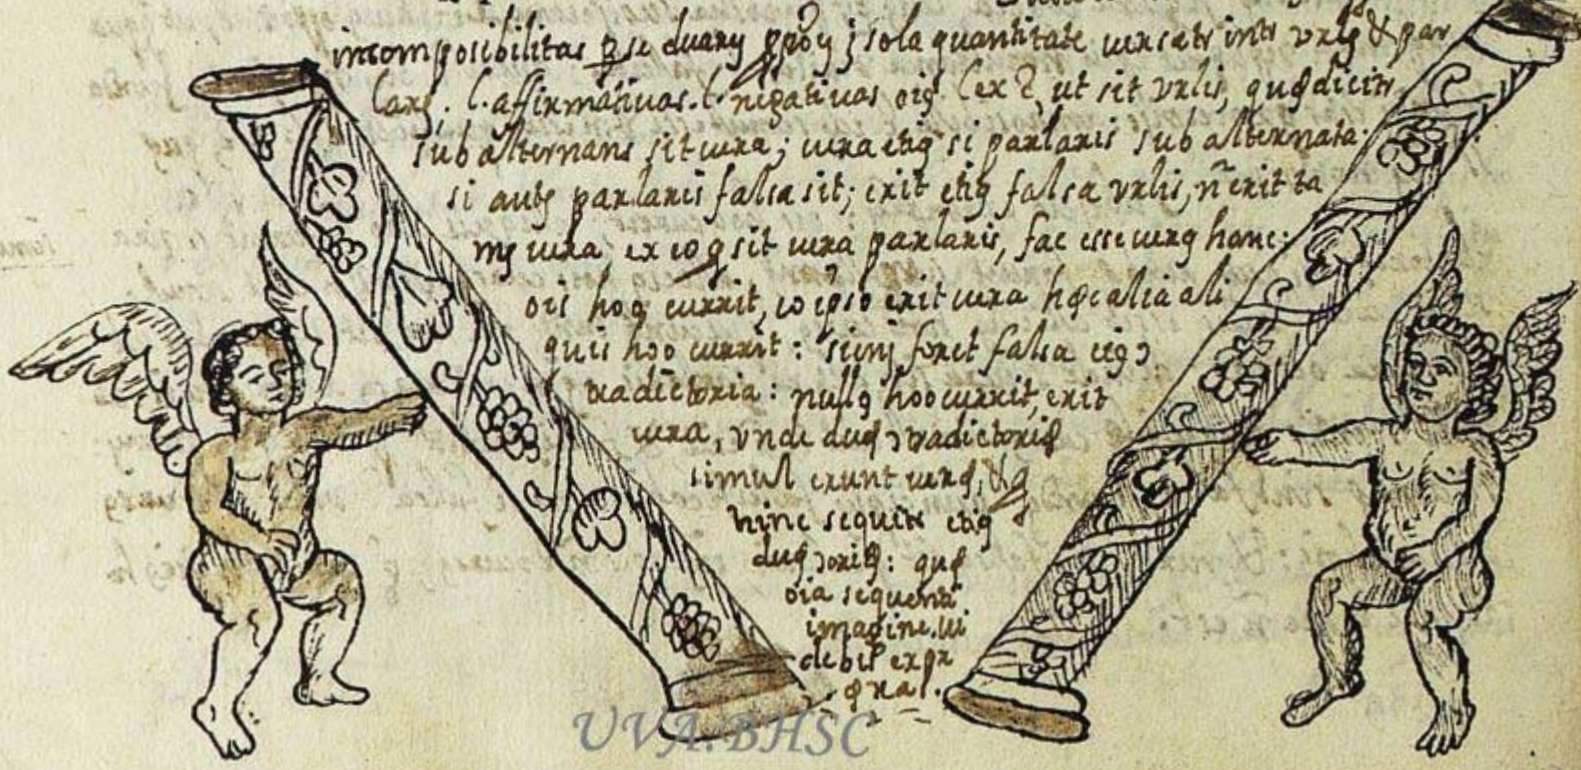 incomposibilitas p se duarų ꝓpõų; sola quantitate uersatr intr vrlę & par
larę. l. affirmatiuas. l. negatiuas oię lex ē, ut sit vrlis, quę dicitr
subalternans sit uera; uera etią si parlaris subalternata.
si autę parlaris falsa sit; erit etią falsa vrlis, ñ erit ta
mę uera, ex eo q sit uera parlaris, fac esse uerą hanc:
ois hoo currit, eo ipso erit uera hęc alia ali
quis hoo currit: si enį foret falsa eię ɔ
tradictoria: nullų hoo currit, erit
uera, vnde duę ɔtradictorię
simul erunt uerę, &
hinc sequitr etią
duę ɔrię: quę
oia sequenti
imagine. ui
debis expr